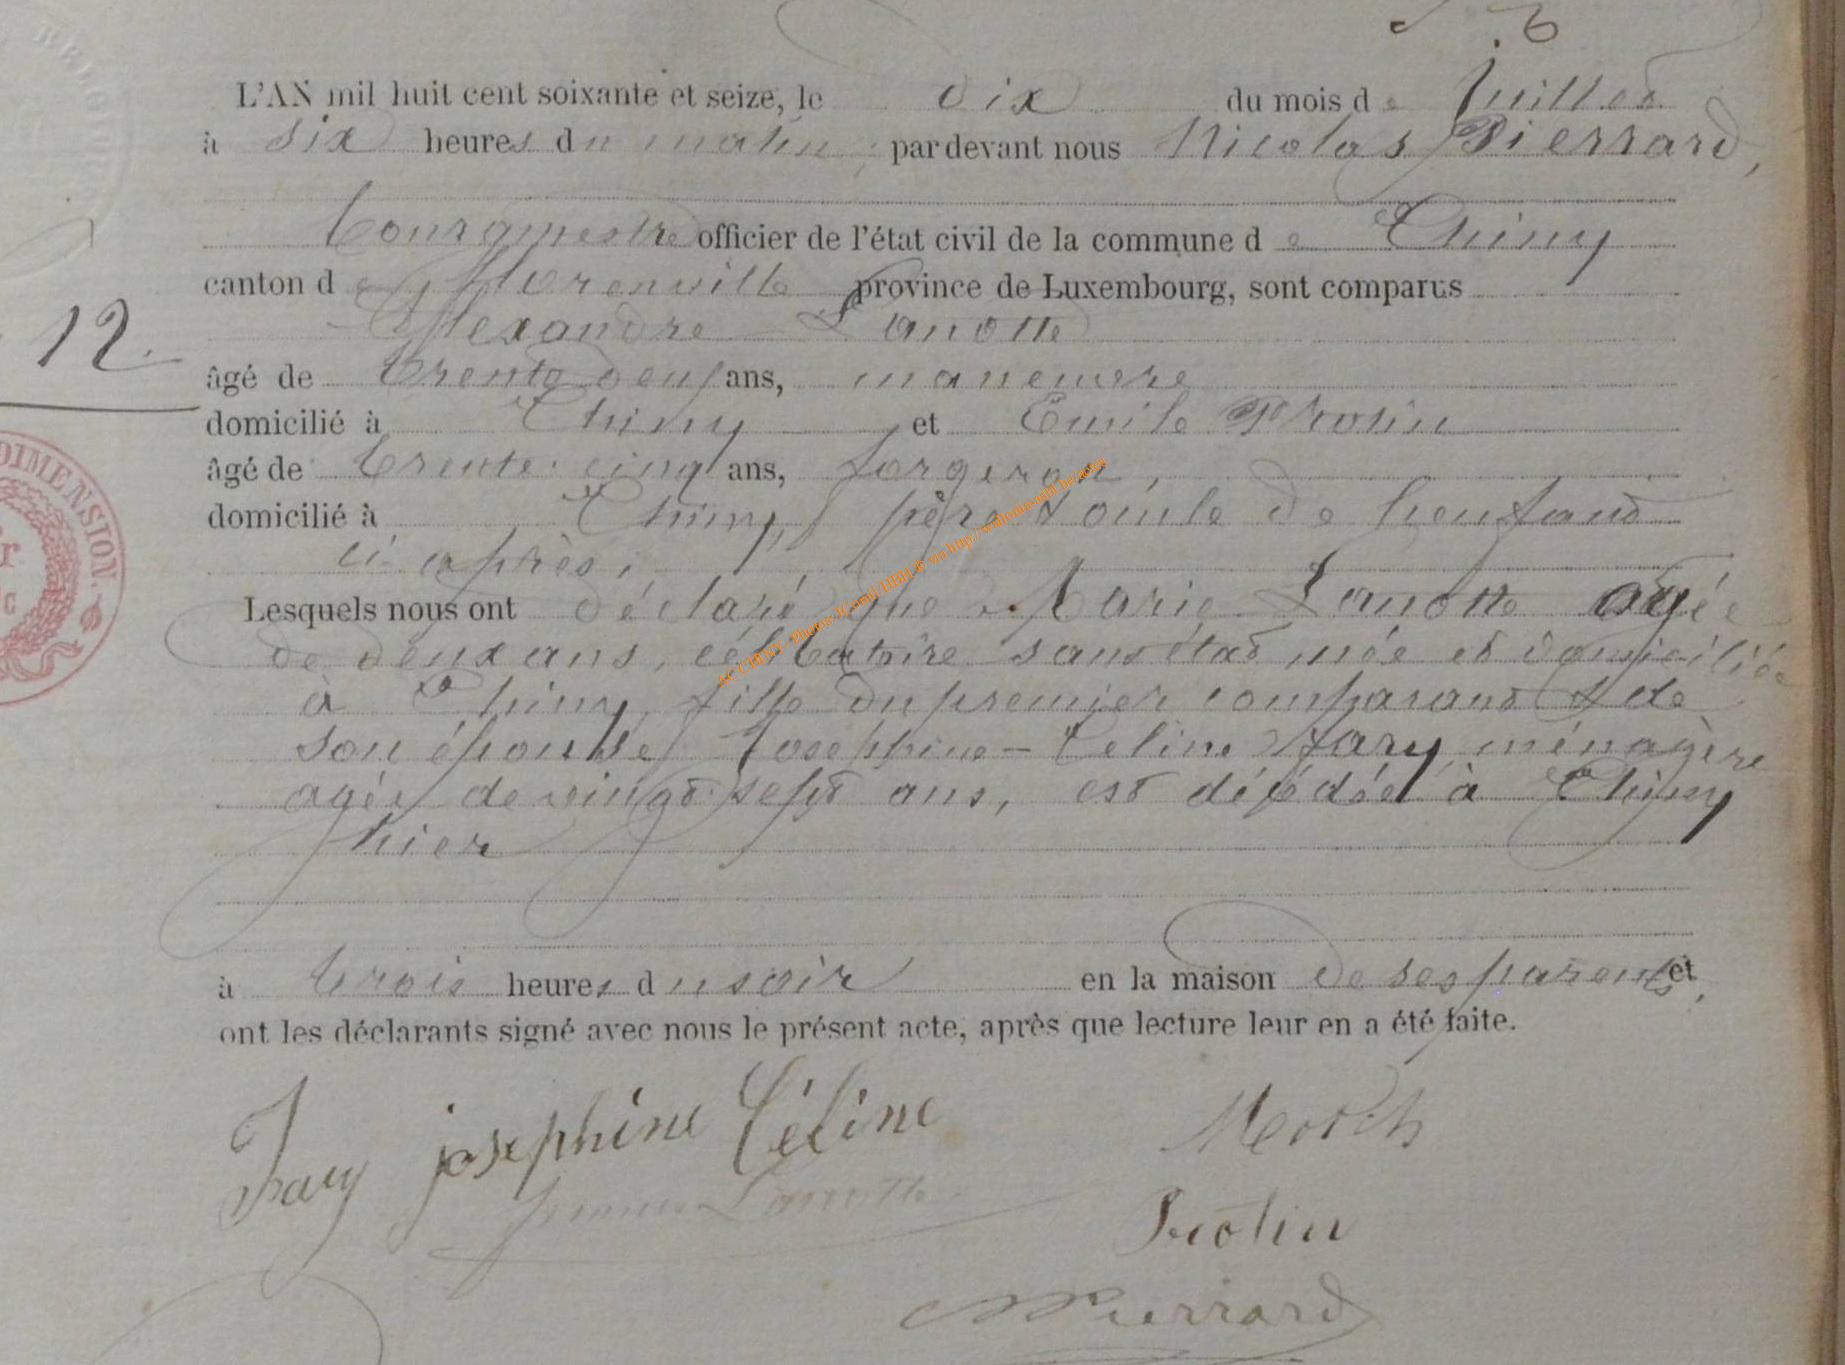 L'AN mil huit cent soixante et seize, le dix du mois de Juillet
à six heures du matin, par devant nous Nicolas Pierrard,
bourgmestre officier de l'état civil de la commune de Chiny
canton de Florenville province de Luxembourg, sont comparus
Alexandre Lanotte
âgé de trente deux ans, manœuvre
12.
domicilié à Chiny et Emile Protin
âgé de trente-cinq ans, forgeron,
domicilié à Chiny, père & oncle de l'enfant
ci-après;
Lesquels nous ont déclaré que Marie Lanotte agée
de deux ans, célibataire sans état, née et domiciliée
à Chiny, fille du premier comparant & de
son épouse Josephine-Celine Fary, ménagère
agée de vingt-sept ans, est décédée à Chiny
hier
à trois heures du soir en la maison de ses parents, et
ont les déclarants signé avec nous le présent acte, après que lecture leur en a été faite.
josephine Céline
Lanotte
Protin
NPierrard
DIMENSION.